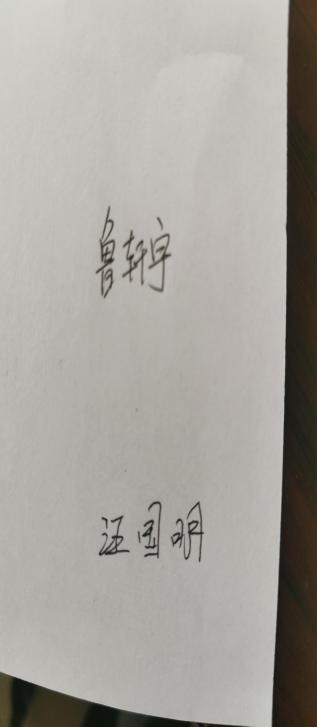 鲁轩宇
汪国明